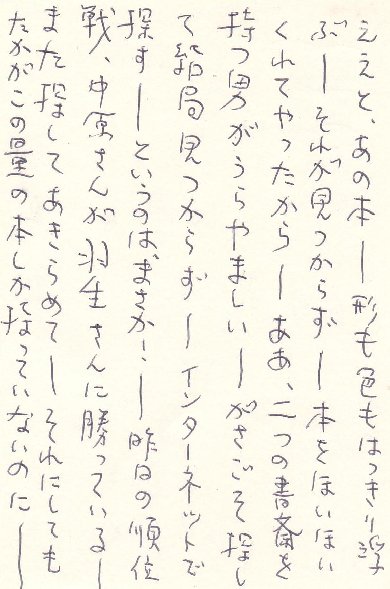 ええと、あの本―形も色もはっきり浮
ぶ―それが見つからず―本をほいほい
くれてやったから―ああ、二つの書斎を
持つ男がうらやましい―がさごそ探し
て結局見つからず―インターネットで
探す―というのはまさか!―昨日の順位
戦、中原さんが羽生さんに勝っている―
また探してあきらめて―それにしても
たかがこの量の本しか持っていないのに―